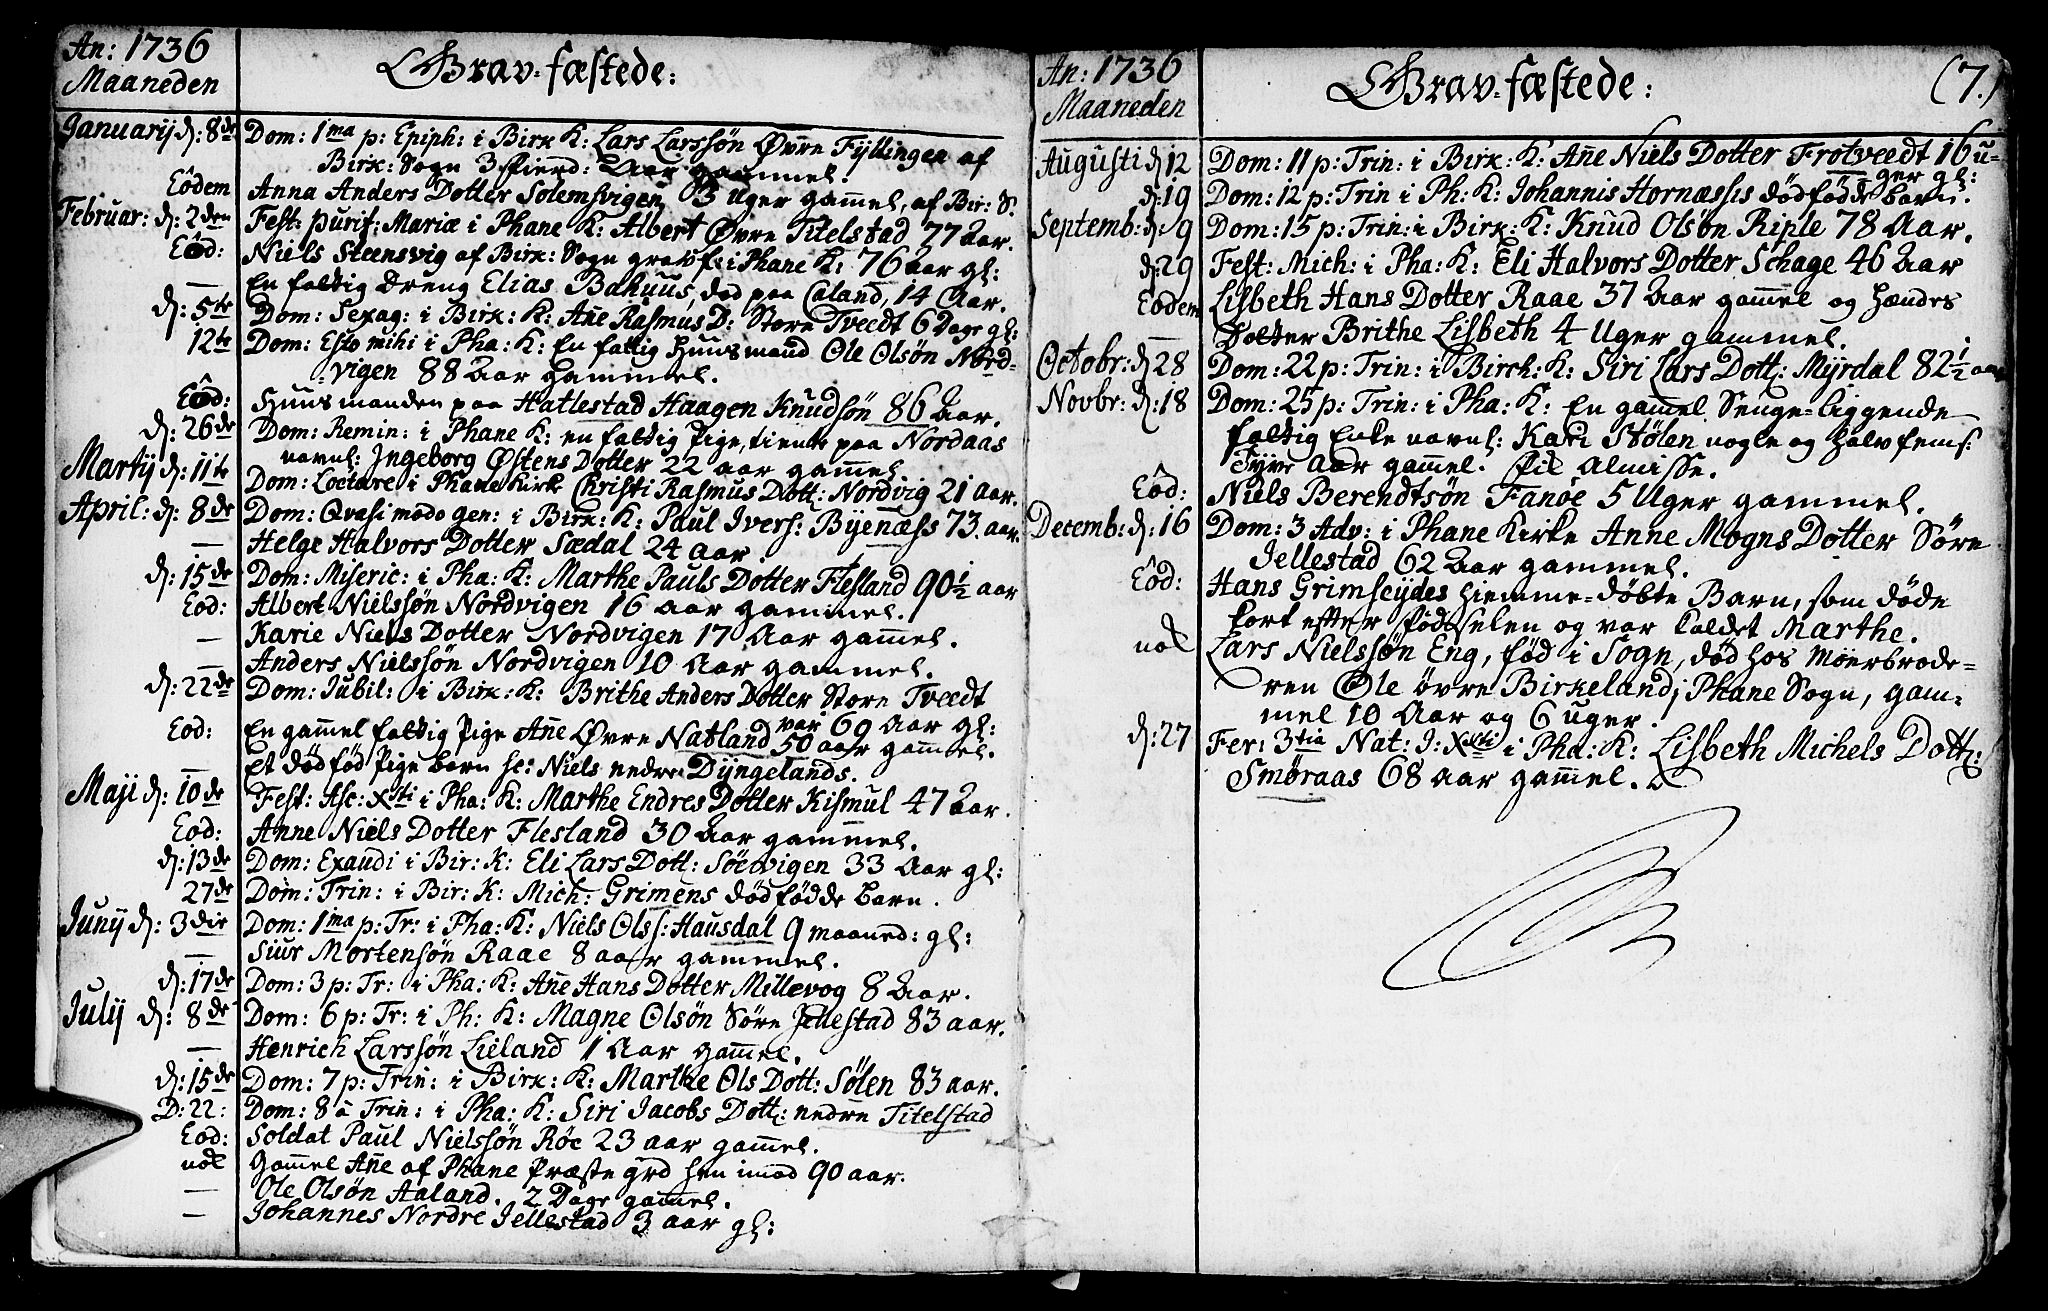 An: 1736
Maaneden
Grav-fæstede:
Januarij d: 8de Dom: 1ma p: Epiph: i Birk K: Lars Larssøn Øvre Fyllingen af
Birk: Sogn 3 fierd: Aar gammel.
Eodem Anna Anders Dotter Solemsvigen 3 Uger gammel, af Bir: S.
Februar: d: 2den Fest: Purif: Mariæ i Phane K: Albert Øvre Titelstad 77 Aar.
Eod: Niels Steensvig af Birk: Sogn gravf: i Phane K: 76 Aar gl:
— En fattig Dreng Elias Bakuus, død paa Caland, 14 Aar.
d: 5te Dom: Sexag: i Birk: K: Añe Rasmus D: Store Tveedt 6 Dage gl:
12te Dom: Esto mihi i Pha: K: En fattig Huusmand Ole Olsøn Nord-
vigen 88 Aar Gammel.
Eod: Huusmanden paa Hatlestad Haagen Knudsøn 86 Aar.
d: 26de Dom: Remin: i Phane K: en fattig Pige, tiente paa Nordaas
navnl: Ingeborg Østens Dotter 22 aar gam̄el
Martij d: 11te Dom: Loetare i Phane Kirk Christi Rasmus Dott: Nordvig 21 aar.
April: d: 8de Dom: Qvasi modo gen: i Birk: K: Paul Ivers: Byenæss 73. aar.
— Helge Halvors Dotter Sædal 24 aar.
d: 15de Dom: Miseric: i Pha: K: Marthe Pauls Dotter Flesland 90½ aar
Eod: Albert Nielssøn Nordvigen 16 aar gammel.
— Karie Niels Dotter Nordvigen 17 Aar gam̄el.
Anders Nielssøn Nordvigen 10 Aar gammel.
d: 22de Dom: Jubil: i Birk: K: Brithe Anders Dotter Store Tveedt
var 69 Aar gl:
Eod: En gam̄el fattig Pige Añe Øvre Natland 50 aar gam̄el.
— Et dødfød Pige barn sc: Niels nedre Dyngelands.
Maji d: 10de Fest: Asc: Xsti i Pha: K: Marthe Endres Dotter Kismul 47 Aar.
Eod: Anne Niels Dotter Flesland 30 Aar gammel.
d: 13de Dom: Exaudi i Bir: K: Eli Lars Dott: Søevigen 33 Aar gl:
27de Dom: Trin: i Bir: K: Mich: Grimens dødfødde barn.
Junij d: 3die Dom: 1ma p: Tr: i Pha: K: Niels Olss: Hausdal 9 maaned: gl:
— Siur Mortensøn Raae 8 aar gammel.
d: 17de Dom: 3 p: Tr: i Pha: K: Añe Hans Dotter Millevog 8 Aar.
Julij d: 8de Dom: 6 p: Tr: i Ph: K: Magne Olsøn Søre Jellestad 83 aar.
— Henrich Larssøn Lieland 1 Aar gam̄el.
d: 15de Dom: 7 p: Trin: i Birk: K: Marthe Ols Dott: Sølen 83 aar.
D: 22: Dom: 8 a Trin: i Pha: K: Siri Jacobs Dott: nedre Titelstad
Eod: Soldat Paul Nielssøn Røe 23 aar gam̄el.
nok Gam̄el Añe af Phane Præste grd hen imod 90 aar.
— Ole Olsøn Aaland. 2 Dage gam̄el.
— Johannes Nordre Jellestad 3 aar gl:
An: 1736
Maaneden
Grav-fæstede:
(7.)
Augusti d: 12 Dom: 11 p: Trin: i Birk: K: Añe Niels Dotter Frotveedt 16 u-
ger gl:
d: 19 Dom: 12 p: Trin i Ph: K: Johannis Hornæssis dødfødde barn.
Septemb: d: 9 Dom: 15 p: Trin: i Birk: K: Knud Olsøn Riple 78 Aar.
d: 29 Fest: Mich: i Pha: K: Eli Halvors Dotter Schage 46 Aar
Eodem Lisbeth Hans Dotter Raae 37 Aar gam̄el og hendes
Dotter Brithe Lisbeth 4 Uger gammel.
Octobr: d: 28 Dom: 22 p: Trin: i Birch: K: Siri Lars Dott: Myrdal 82½ aar
Novbr: d: 18 Dom: 25 p: Trin: i Pha: K: En gam̄el Senge-liggende
fattig Enke navnl: Kari Stølen nogle og halvfems:
Tyve Aar gam̄el. fik Almisse.
Eod: Niels Berendtsøn Fanøe 5 Uger gammel.
Decemb: d: 16 Dom: 3 Adv: i Phane Kirke Anne Mogns Dotter Søre
Jellestad 62 Aar gammel.
Eod: Hans Grimseydes hiemme-døbte Barn, som døde
kort efter fødsselen og var kaldet Marthe.
nok Lars Nielssøn Eng, fød i Sogn, død hos Moerbrode-
ren Ole øvre Birkeland i Phane Sogn, gam-
mel 10 Aar og 6 uger.
d: 27 Fer: 3tia Nat: J: Xsti i Pha: K: Lisbeth Michels Dott:
Smøraas 68 aar gam̄el.